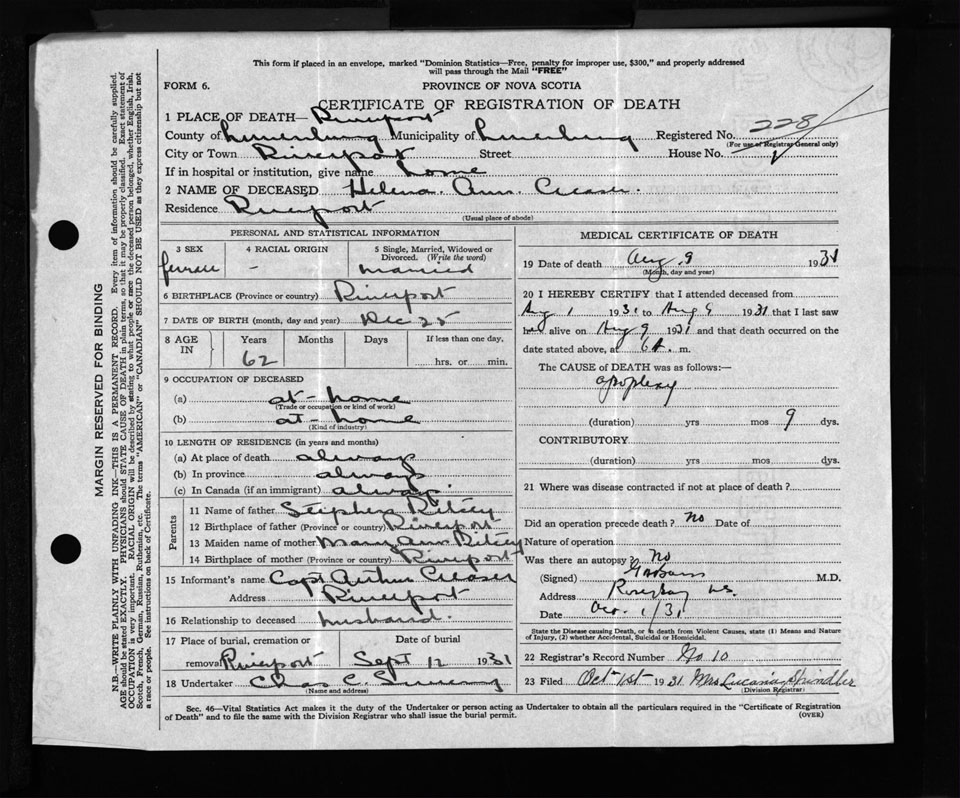 This form if placed in an envelope, marked "Dominion Statistics—Free, penalty for improper use, $300," and properly addressed
will pass through the Mail "FREE"
FORM 6. PROVINCE OF NOVA SCOTIA
CERTIFICATE OF REGISTRATION OF DEATH
1 PLACE OF DEATH— Riverport
County of Lunenburg Municipality of Lunenburg Registered No. 228
(For use of Registrar General only)
City or Town Riverport Street House No.
If in hospital or institution, give name home
2 NAME OF DECEASED Helena Ann Creaser.
Residence Riverport
(Usual place of abode)
PERSONAL AND STATISTICAL INFORMATION
3 SEX 4 RACIAL ORIGIN 5 Single, Married, Widowed or Divorced. (Write the word)
female - married
6 BIRTHPLACE (Province or country) Riverport
7 DATE OF BIRTH (month, day and year) Dec 25
8 AGE IN Years Months Days If less than one day,
62 hrs. or min.
9 OCCUPATION OF DECEASED
(a) at-home
(Trade or occupation or kind of work)
(b) at-home
(Kind of industry)
10 LENGTH OF RESIDENCE (in years and months)
(a) At place of death always
(b) In province always
(c) In Canada (if an immigrant) always
Parents
11 Name of father Ritcey
12 Birthplace of father (Province or country) Riverport
13 Maiden name of mother Mary Ann Ritcey
14 Birthplace of mother (Province or country) Riverport
15 Informant's name Capt Arthur Creaser
Address Riverport
16 Relationship to deceased husband.
17 Place of burial, cremation or removal Riverport Date of burial Sept 12 1931
18 Undertaker Chas C.
(Name and address)
MEDICAL CERTIFICATE OF DEATH
19 Date of death Aug. 9 1931
(Month, day and year)
20 I HEREBY CERTIFY that I attended deceased from
Aug 1 1931 to Aug 9 1931 that I last saw
her alive on Aug 9 1931 and that death occurred on the
date stated above, at 6 A. m.
The CAUSE of DEATH was as follows:—
apoplexy
(duration) yrs mos 9 dys.
CONTRIBUTORY
(duration) yrs mos dys.
21 Where was disease contracted if not at place of death?
Did an operation precede death? no Date of
Nature of operation
Was there an autopsy No
(Signed) M.D.
Address Rosebay N.S.
Date Oct. 1/31
State the Disease causing Death, or in death from Violent Causes, state (1) Means and Nature
of Injury, (2) whether Accidental, Suicidal or Homicidal.
22 Registrar's Record Number No 10
23 Filed Oct-1st- 1931 Mrs Lucania Spindler
(Division Registrar)
Sec. 46—Vital Statistics Act makes it the duty of the Undertaker or person acting as Undertaker to obtain all the particulars required in the "Certificate of Registration
of Death" and to file the same with the Division Registrar who shall issue the burial permit. (OVER)
MARGIN RESERVED FOR BINDING
N.B.—WRITE PLAINLY WITH UNFADING INK—THIS IS A PERMANENT RECORD. Every item of information should be carefully supplied.
AGE should be stated EXACTLY. PHYSICIANS should STATE CAUSE OF DEATH in plain terms, so that it may be properly classified. Exact statement of
OCCUPATION is very important. RACIAL ORIGIN will be described by stating to what people or race the deceased person belonged, whether English, Irish,
Scotch, French, German, Russian, Ruthenian, etc. The terms "AMERICAN" or "CANADIAN" SHOULD NOT BE USED as they express citizenship but not
a race or people. See instructions on back of Certificate.